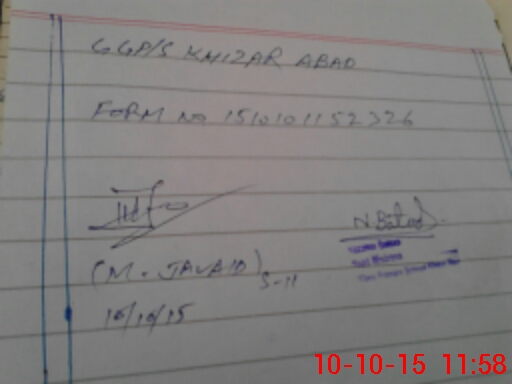 GGP/S KHIZAR ABAD
FORM NO 15101011 52326
N. Batool
(M. JAVAID)
S-H
10/10/15
10-10-15 11:58